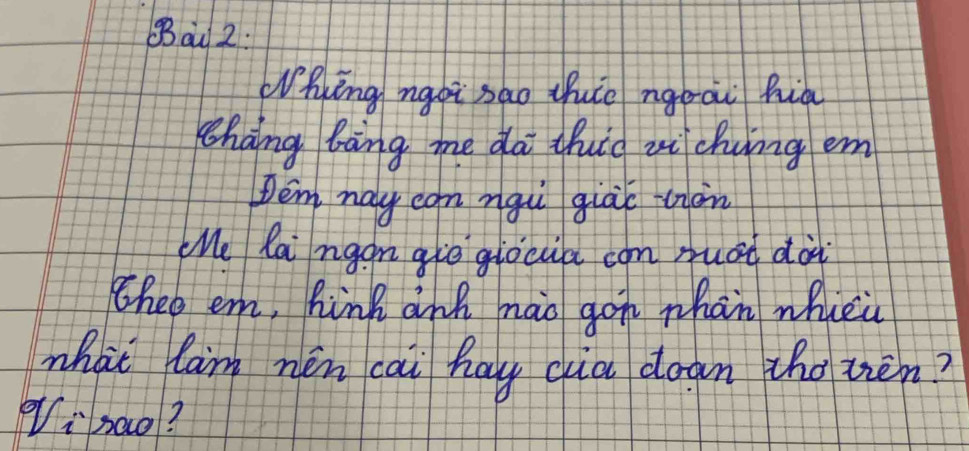 Bài 2:
Những ngôi sao thức ngoài kia
Chẳng bằng mẹ đã thức vì chúng em
Đêm nay con ngủ giấc tròn
Mẹ là ngọn gió giócủa con suốt đời
Theo em, hình ảnh nào góp phần nhiều
nhất làm nên cái hay của đoạn thơ trên?
Vì sao?